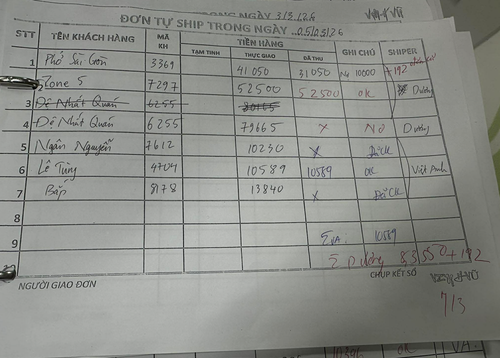 TRONG NGÀY 3/3/26
ĐƠN TỰ SHIP TRONG NGÀY 05/03/26
STT TÊN KHÁCH HÀNG MÃ KH TIỀN HÀNG GHI CHÚ SHIPER
TẠM TÍNH THỰC GIAO ĐÃ THU
1 Phố Sài Gòn 3369 41050 31050 Nợ 10000 +192
2 Zone 5 7297 52500 52500 OK Dương
3 Đệ Nhất Quán 6255
4 Đệ Nhất Quán 6255 79665 x Nợ Dương
5 Ngân Nguyễn 7612 10230 x ĐÃ CK
6 Lê Tùng 4704 10589 10589 OK Việt Anh
7 Bắp 8178 13840 x ĐÃ CK
8
9 Σ VA 10589
10 Σ Dương 83550 + 192
NGƯỜI GIAO ĐƠN CHỤP KẾT SỔ
7/3
OK VA